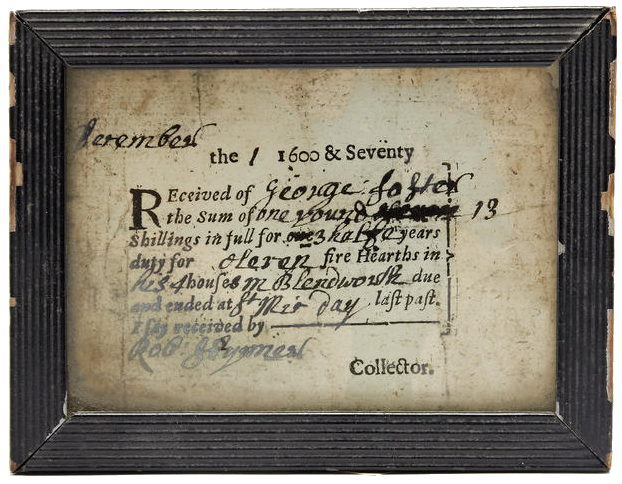 December
the 1 1600 & Seventy
REceived of George foster
the Sum of one pound 13
Shillings in full for 3 halfe years
duty for eleven fire Hearths in
his 4 houses in Blendworth due
and ended at St Mic day last past.
I say received by
Rob:
Collector.